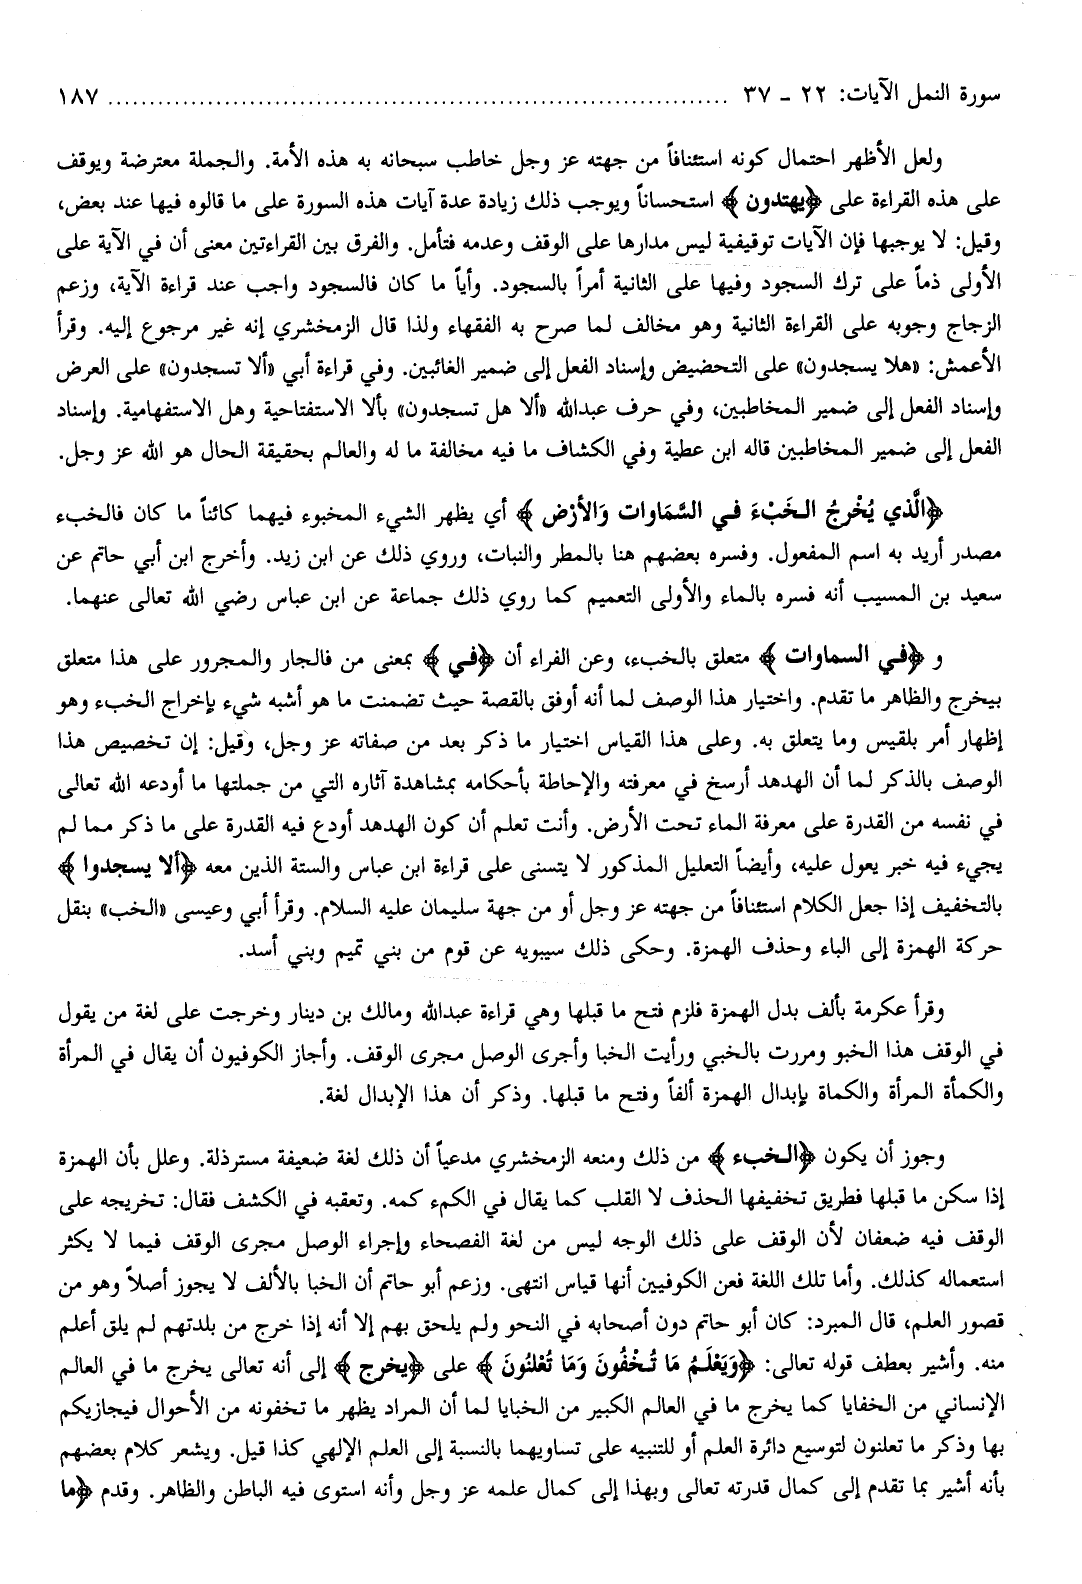 سورة النمل الآيات: ٢٢ - ٣٧ ........................................................................... ١٨٧
ولعل الأظهر احتمال كونه استئنافاً من جهته عز وجل خاطب سبحانه به هذه الأمة. والجملة معترضة ويوقف
على هذه القراءة على ﴿يهتدون﴾ استحساناً ويوجب ذلك زيادة عدة آيات هذه السورة على ما قالوه فيها عند بعض،
وقيل: لا يوجبها فإن الآيات توقيفية ليس مدارها على الوقف وعدمه فتأمل. والفرق بين القراءتين معنى أن في الآية على
الأولى ذماً على ترك السجود وفيها على الثانية أمراً بالسجود. وأياً ما كان فالسجود واجب عند قراءة الآية، وزعم
الزجاج وجوبه على القراءة الثانية وهو مخالف لما صرح به الفقهاء ولذا قال الزمخشري إنه غير مرجوع إليه. وقرأ
الأعمش: «هلا يسجدون» على التحضيض وإسناد الفعل إلى ضمير الغائبين. وفي قراءة أبي «ألا تسجدون» على العرض
وإسناد الفعل إلى ضمير المخاطبين، وفي حرف عبدالله «ألا هل تسجدون» بألا الاستفتاحية وهل الاستفهامية. وإسناد
الفعل إلى ضمير المخاطبين قاله ابن عطية وفي الكشاف ما فيه مخالفة ما له والعالم بحقيقة الحال هو الله عز وجل.
﴿الَّذي يُخْرِجُ الخَبْءَ في السَّمَاوات وَالأَرْض﴾ أي يظهر الشيء المخبوء فيهما كائناً ما كان فالخبء
مصدر أريد به اسم المفعول. وفسره بعضهم هنا بالمطر والنبات، وروي ذلك عن ابن زيد. وأخرج ابن أبي حاتم عن
سعيد بن المسيب أنه فسره بالماء والأولى التعميم كما روي ذلك جماعة عن ابن عباس رضي الله تعالى عنهما.
و ﴿في السماوات﴾ متعلق بالخبء، وعن الفراء أن ﴿في﴾ بمعنى من فالجار والمجرور على هذا متعلق
بيخرج والظاهر ما تقدم. واختيار هذا الوصف لما أنه أوفق بالقصة حيث تضمنت ما هو أشبه شيء بإخراج الخبء وهو
إظهار أمر بلقيس وما يتعلق به. وعلى هذا القياس اختيار ما ذكر بعد من صفاته عز وجل، وقيل: إن تخصيص هذا
الوصف بالذكر لما أن الهدهد أرسخ في معرفته والإحاطة بأحكامه بمشاهدة آثاره التي من جملتها ما أودعه الله تعالى
في نفسه من القدرة على معرفة الماء تحت الأرض. وأنت تعلم أن كون الهدهد أودع فيه القدرة على ما ذكر مما لم
يجيء فيه خبر يعول عليه، وأيضاً التعليل المذكور لا يتسنى على قراءة ابن عباس والستة الذين معه ﴿ألا يسجدوا﴾
بالتخفيف إذا جعل الكلام استئنافاً من جهته عز وجل أو من جهة سليمان عليه السلام. وقرأ أبي وعيسى «الخب» بنقل
حركة الهمزة إلى الباء وحذف الهمزة. وحكى ذلك سيبويه عن قوم من بني تميم وبني أسد.
وقرأ عكرمة بألف بدل الهمزة فلزم فتح ما قبلها وهي قراءة عبدالله ومالك بن دينار وخرجت على لغة من يقول
في الوقف هذا الخبو ومررت بالخبي ورأيت الخبا وأجرى الوصل مجرى الوقف. وأجاز الكوفيون أن يقال في المرأة
والكمأة المرأة والكماة بإبدال الهمزة ألفاً وفتح ما قبلها. وذكر أن هذا الإبدال لغة.
وجوز أن يكون ﴿الخبء﴾ من ذلك ومنعه الزمخشري مدعياً أن ذلك لغة ضعيفة مسترذلة. وعلل بأن الهمزة
إذا سكن ما قبلها فطريق تخفيفها الحذف لا القلب كما يقال في الكمء كمه. وتعقبه في الكشف فقال: تخريجه على
الوقف فيه ضعفان لأن الوقف على ذلك الوجه ليس من لغة الفصحاء وإجراء الوصل مجرى الوقف فيما لا يكثر
استعماله كذلك. وأما تلك اللغة فعن الكوفيين أنها قياس انتهى. وزعم أبو حاتم أن الخبا بالألف لا يجوز أصلاً وهو من
قصور العلم، قال المبرد: كان أبو حاتم دون أصحابه في النحو ولم يلحق بهم إلا أنه إذا خرج من بلدتهم لم يلق أعلم
منه. وأشير بعطف قوله تعالى: ﴿وَيَعْلَمُ مَا تُخْفُونَ وَمَا تُعْلنُونَ﴾ على ﴿يخرج﴾ إلى أنه تعالى يخرج ما في العالم
الإنساني من الخفايا كما يخرج ما في العالم الكبير من الخبايا لما أن المراد يظهر ما تخفونه من الأحوال فيجازيكم
بها وذكر ما تعلنون لتوسيع دائرة العلم أو للتنبيه على تساويهما بالنسبة إلى العلم الإلهي كذا قيل. ويشعر كلام بعضهم
بأنه أشير بما تقدم إلى كمال قدرته تعالى وبهذا إلى كمال علمه عز وجل وأنه استوى فيه الباطن والظاهر. وقدم ﴿ما